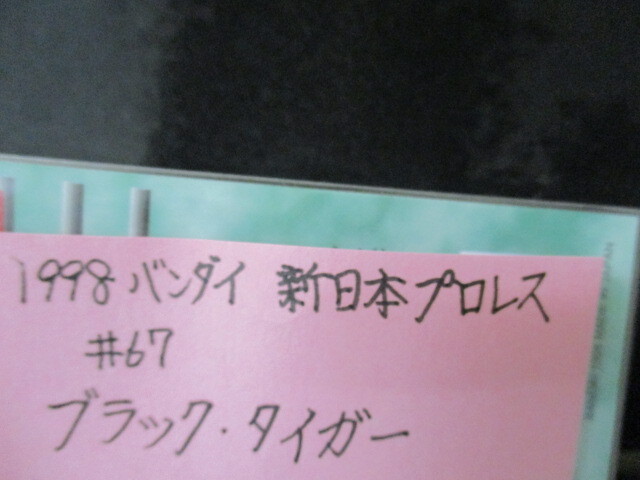 1998 バンダイ 新日本プロレス
#67
ブラック・タイガー